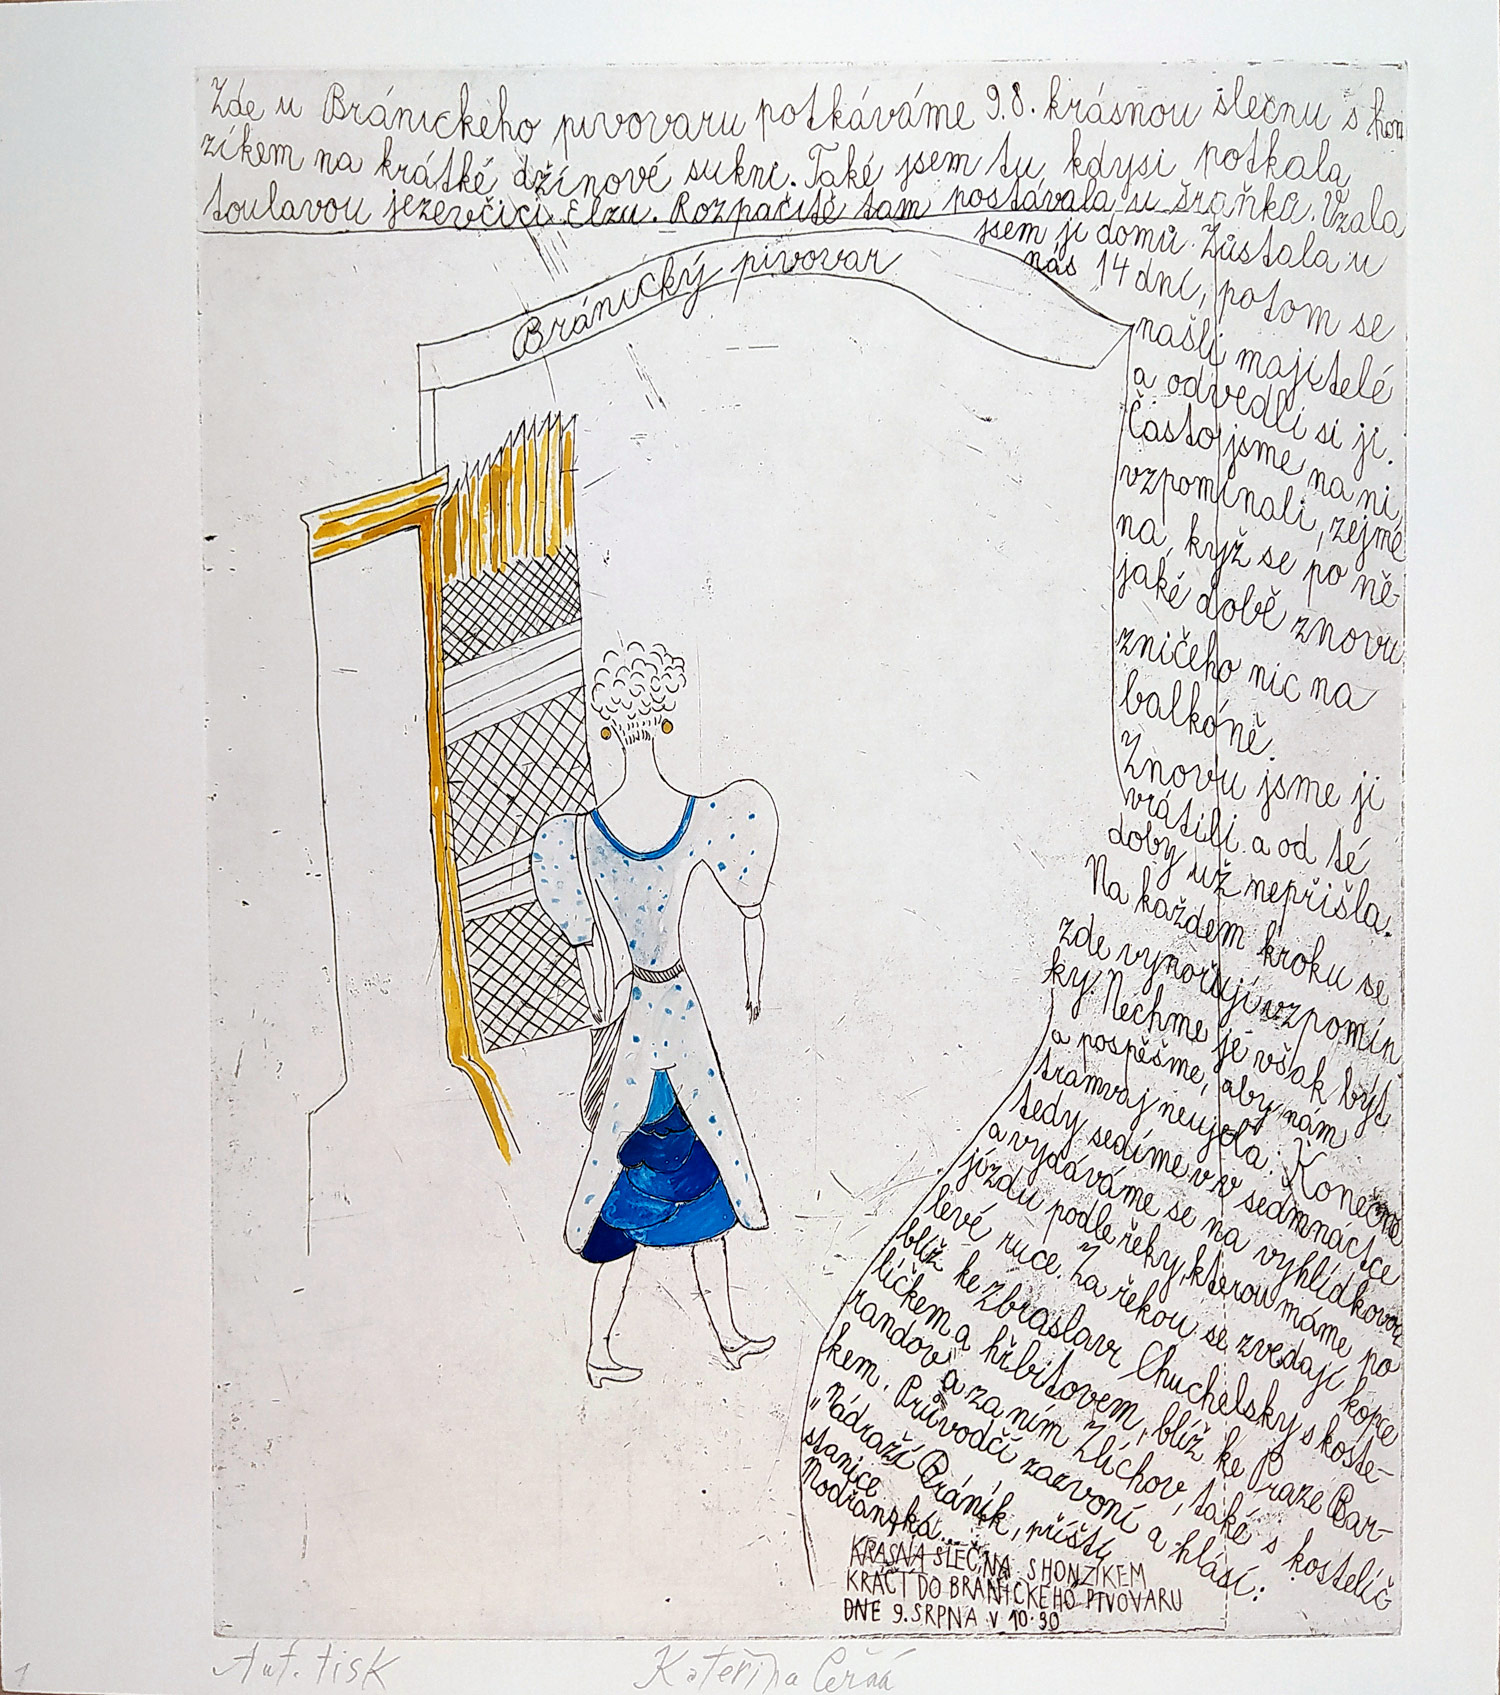 Zde u Bránického pivovaru potkáváme 9.8. krásnou slečnu s hon
zíkem na krátké džínové sukni. Také jsem tu kdysi potkala
toulavou jezevčici Elzu. Rozpačitě tam postávala u šraňků. Vzala
jsem ji domů. Zůstala u
nás 14 dní, potom se
Bránický pivovar
našli majitelé
a odvedli si ji.
Často jsme na ni
vzpomínali, zejmé
na, kyž se po ně-
jaké době znovu
zničeho nic na
balkóně.
Znovu jsme ji
vrátili a od té
doby už nepřišla.
Na každém kroku se
zde vynořují vzpomín
ky. Nechme je však být
a pospěšme, aby nám
tramvaj neujela. Konečně
tedy sedíme v sedmnáctce
a vydáváme se na vyhlídkovou
jízdu podle řeky, kterou máme po
levé ruce. Za řekou se zvedají kopce
blíž ke Zbraslavi Chuchelský s koste-
líčkem a hřbitovem, blíž ke Praze Bar-
randov a za ním Zlíchov, také s kostelíč
kem. Průvodčí zazvoní a hlásí:
"Nádraží Bráník, příští
stanice
Modřanská...
KRÁSNÁ SLEČNA S HONZÍKEM
KRÁČÍ DO BRÁNICKÉHO PIVOVARU
DNE 9. SRPNA V 10.30
1 Aut. tisk Kateřina Černá